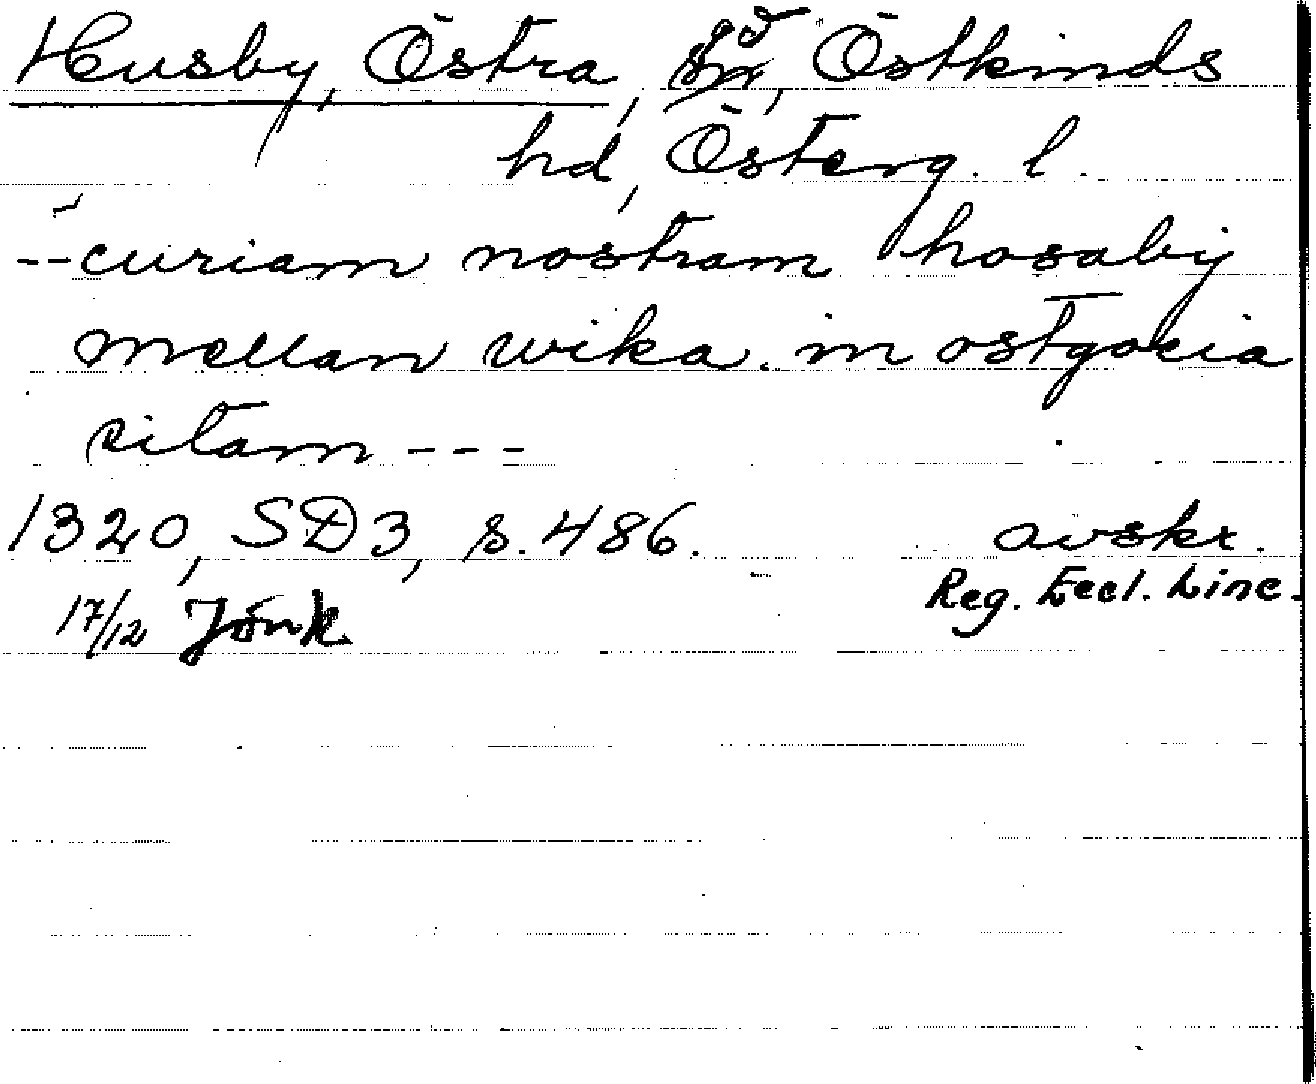 Husby, Östra, sn, Östkinds
hd, Österg. l.
--curiam nostram hosaby
mellan wika. in ostgocia
sitam ---
1320, SD3, s. 486. avskr.
17/12 Jönk Reg. Eccl. Linc.